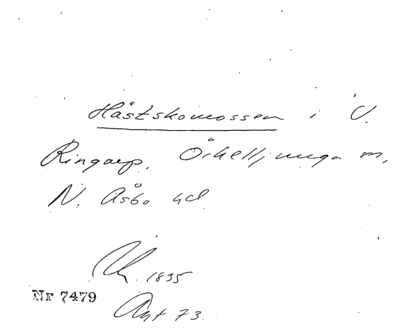 Hästskomossen i V.
Ringarp, Örkelljunga m,
N. Åsbo hd
1835
Nr 7479
Ant 73.